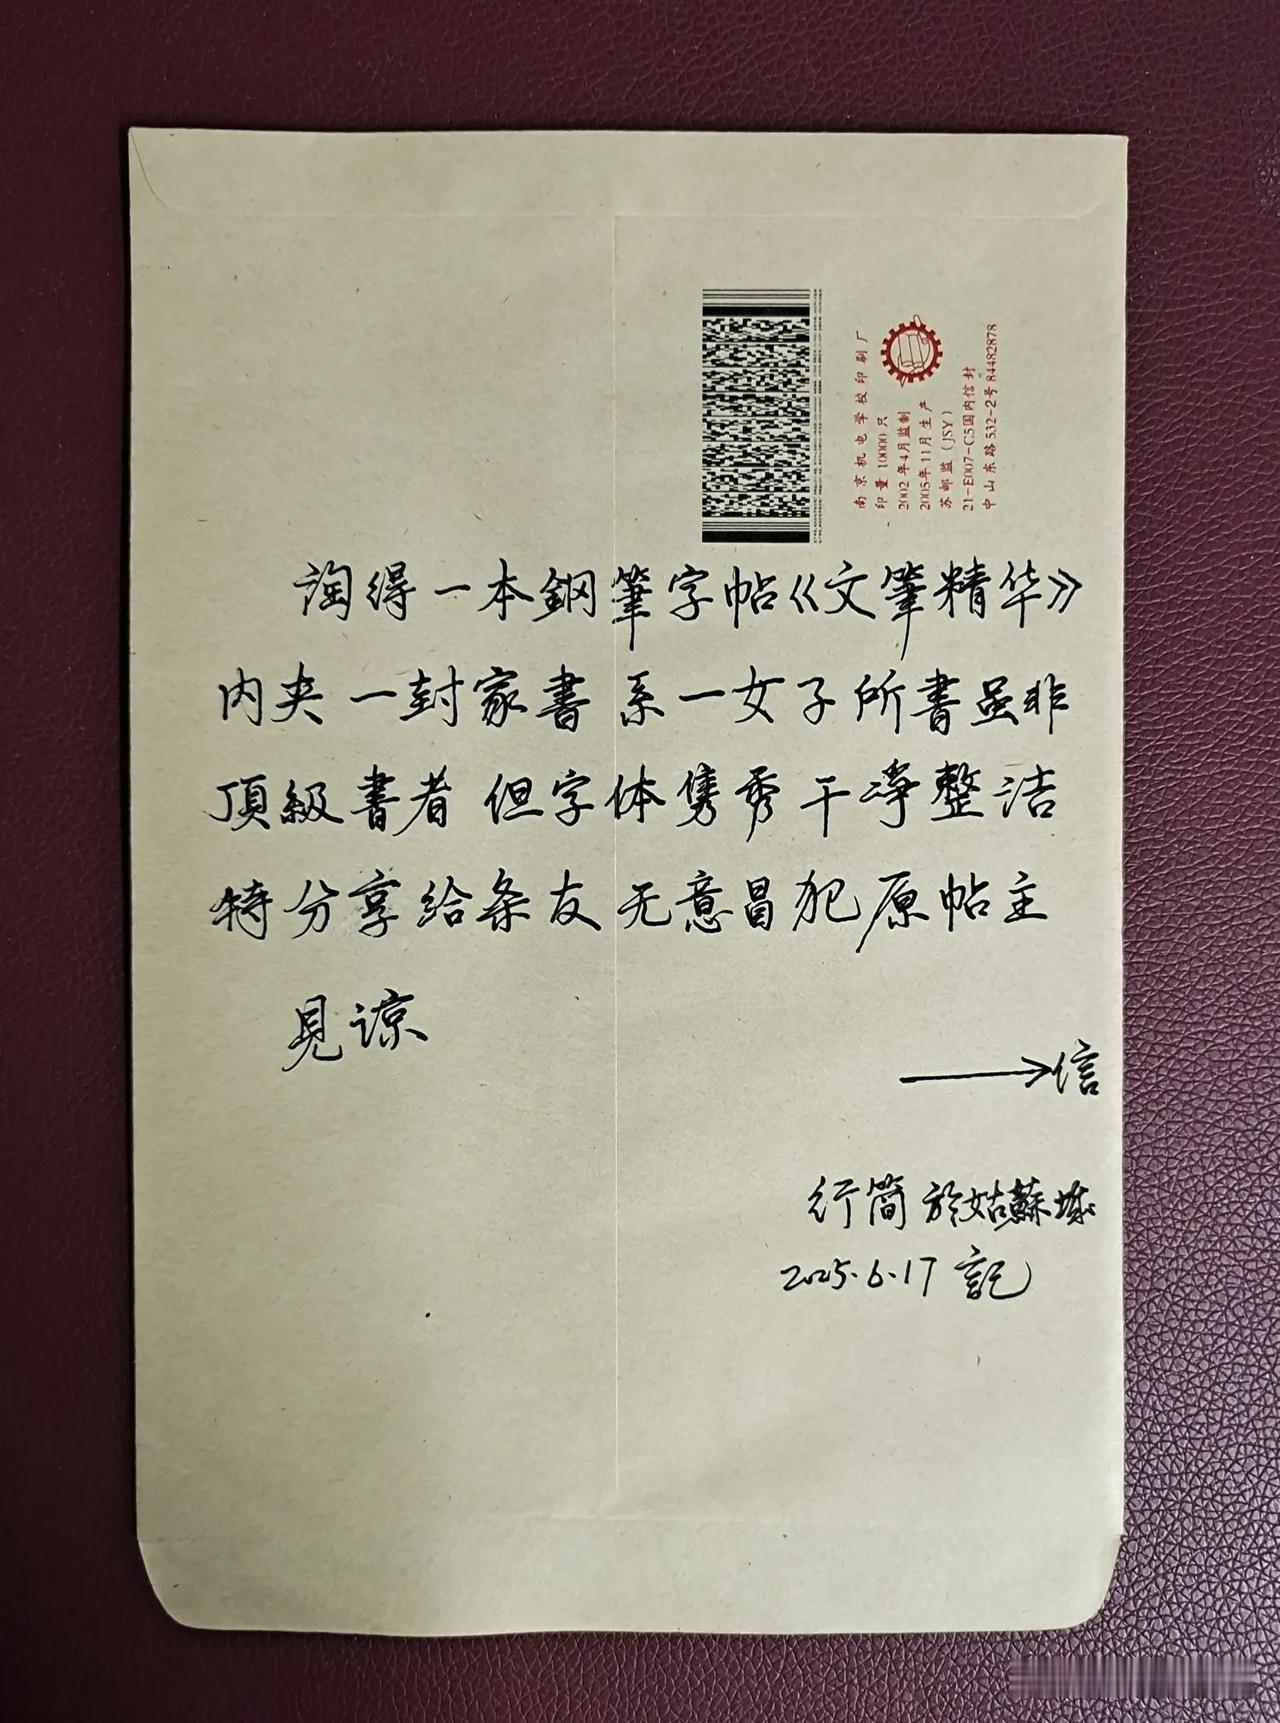 南京机电学校印刷厂
印量 10000 只
2002年4月监制
2005年11月生产
苏邮监(JSY)
21-E007-C5国内信封
中山东路532-2号 84482878
淘得一本鋼筆字帖《文筆精华》
内夹一封家書 系一女子所書虽非
頂級書者 但字体隽秀干淨整洁
特分享給条友 无意冒犯原帖主
見谅
→信
行簡於姑蘇城
2025.6.17 記